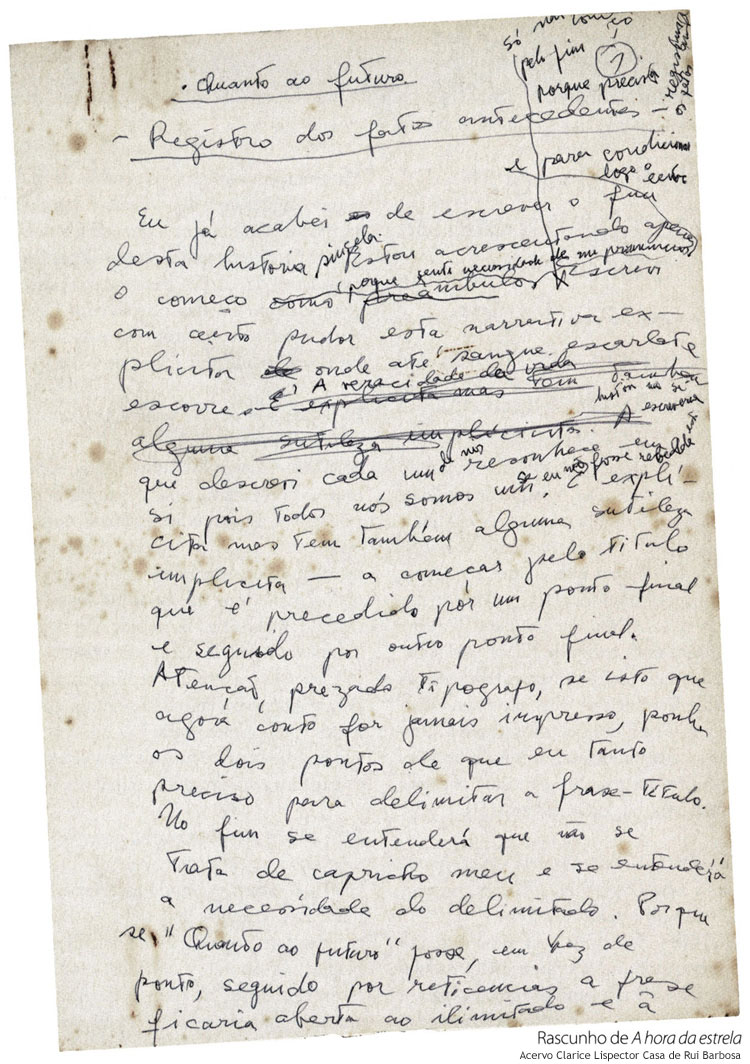 só não começo
pelo fim
porque preciso
registrar
os fatos
①
. Quanto ao futuro.
– Registro dos fatos antecedentes –
e para condicionar
logo
Eu já acabei de escrever o fim
desta historia singela. Estou acrescentando apenas
porque senti necessidade de me
o começo como preâmbulo. Escrevi
com certo pudor esta narrativa ex-
plicita de onde até sangue escarlate
A veracidade da vida
escorre. É explicita mas tem tambem
alguma sutileza implicita. A
que descrevi cada um de nós reconhece em
se eu não fosse
si pois todos nós somos um. É explí-
cita mas tem também alguma sutileza
implicita — a começar pelo titulo
que é precedido por um ponto final
e seguido por outro ponto final.
Atenção, prezado tipografo, se isto que
agora conto for jamais impresso, ponha
os dois pontos de que eu tanto
preciso para delimitar a frase-titulo.
No fim se entenderá que não se
trata de capricho meu e se entenderá
a necessidade do delimitado. Porque
se "Quanto ao futuro" fosse, em vez de
ponto, seguido por reticencias a frase
ficaria aberta ao ilimitado e à
Rascunho de A hora da estrela
Acervo Clarice Lispector Casa de Rui Barbosa